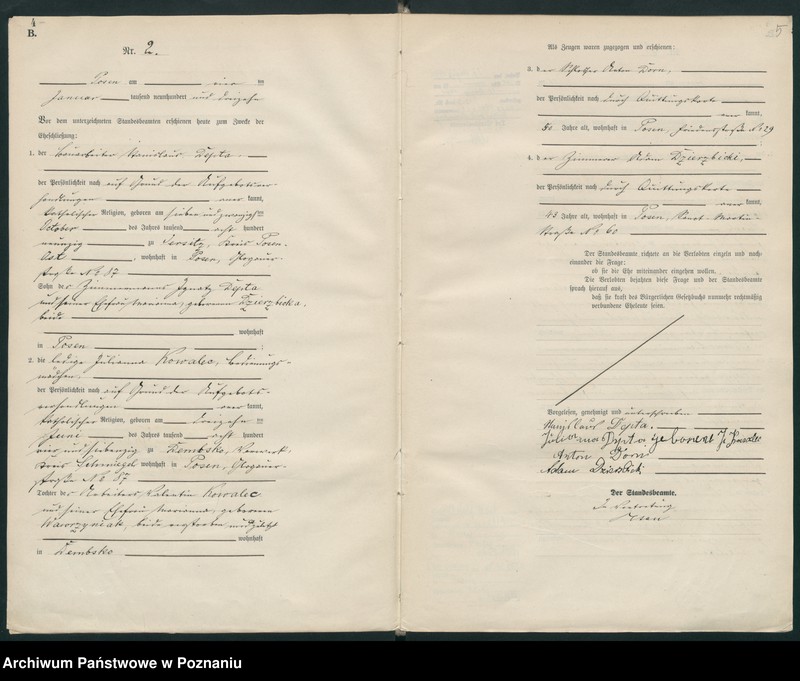 4
B.
Nr. 2.
Posen am vier ten
Januar tausend neunhundert und dreizehn
Vor dem unterzeichneten Standesbeamten erschienen heute zum Zwecke der
Eheschließung:
1. der Bauarbeiter Stanislaus Depta
der Persönlichkeit nach auf Grund der Aufgebotsver-
handlungen aner kannt,
katholischer Religion, geboren am sieben und zwanzigsten
October des Jahres tausend acht hundert
neunzig zu Jersitz, Kreis Posen-
Ost, wohnhaft in Posen, Glogauer-
straße No. 87
Sohn des Zimmermannes Ignatz Depta
und seiner Ehefrau Marianna, geborenen Dzierzbicka,
beide
wohnhaft
in Posen
2. die ledige Julianna Kowalec, Bedienungs-
mädchen
der Persönlichkeit nach auf Grund der Aufgebots-
verhandlungen aner kannt,
katholischer Religion, geboren am dreizehn ten
Juni des Jahres tausend acht hundert
vier und siebenzig zu Zembsko, Vorwerk,
Kreis Schmiegel, wohnhaft in Posen, Glogauer-
straße No. 87
Tochter des Arbeiters Valentin Kowalec
und seiner Ehefrau Marianna, geborenen
Wawrzyniak, beide verstorben, und zuletzt
wohnhaft
in Zembsko
5
Als Zeugen waren zugezogen und erschienen:
3. der Schlosser Anton Dorn,
der Persönlichkeit nach durch Quittungskarte
aner kannt,
50 Jahre alt, wohnhaft in Posen, straße No. 29
4. der Zimmerer Adam Dzierzbicki,
der Persönlichkeit nach durch Quittungskarte
aner kannt,
43 Jahre alt, wohnhaft in Posen, Sankt-Martin-
straße No. 60
Der Standesbeamte richtete an die Verlobten einzeln und nach-
einander die Frage:
ob sie die Ehe miteinander eingehen wollen.
Die Verlobten bejahten diese Frage und der Standesbeamte
sprach hierauf aus,
daß sie kraft des Bürgerlichen Gesetzbuchs nunmehr rechtmäßig
verbundene Eheleute seien.
Vorgelesen, genehmigt und unterschrieben
Depta.
Depta geborene Kowalec
Anton Dorn
Adam Dzierzbicki
Der Standesbeamte.
In Vertretung
Archiwum Państwowe w Poznaniu